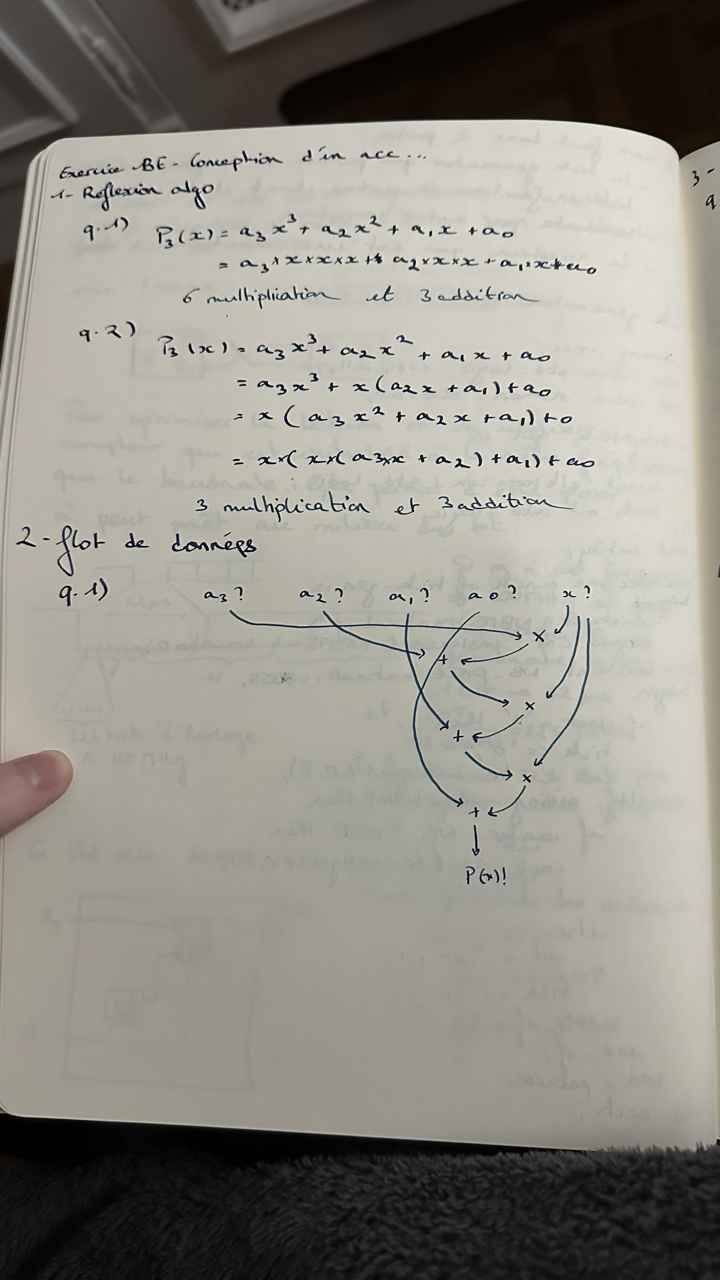 Exercice BE - Conception d'un acc...
1- Reflexion algo
q.1) P₃(x) = a₃x³ + a₂x² + a₁x + a₀
= a₃×x×x×x + a₂×x×x + a₁×x+a₀
6 multiplication et 3 addition
q.2) P₃(x) = a₃x³ + a₂x² + a₁x + a₀
= a₃x³ + x(a₂x + a₁) + a₀
= x(a₃x² + a₂x + a₁) + 0
= x×(x×(a₃×x + a₂) + a₁) + a₀
3 multiplication et 3 addition
2- flot de données
q.1) a₃? a₂? a₁? a₀? x?
×
+
×
+
×
+
P(x)!
3-
q